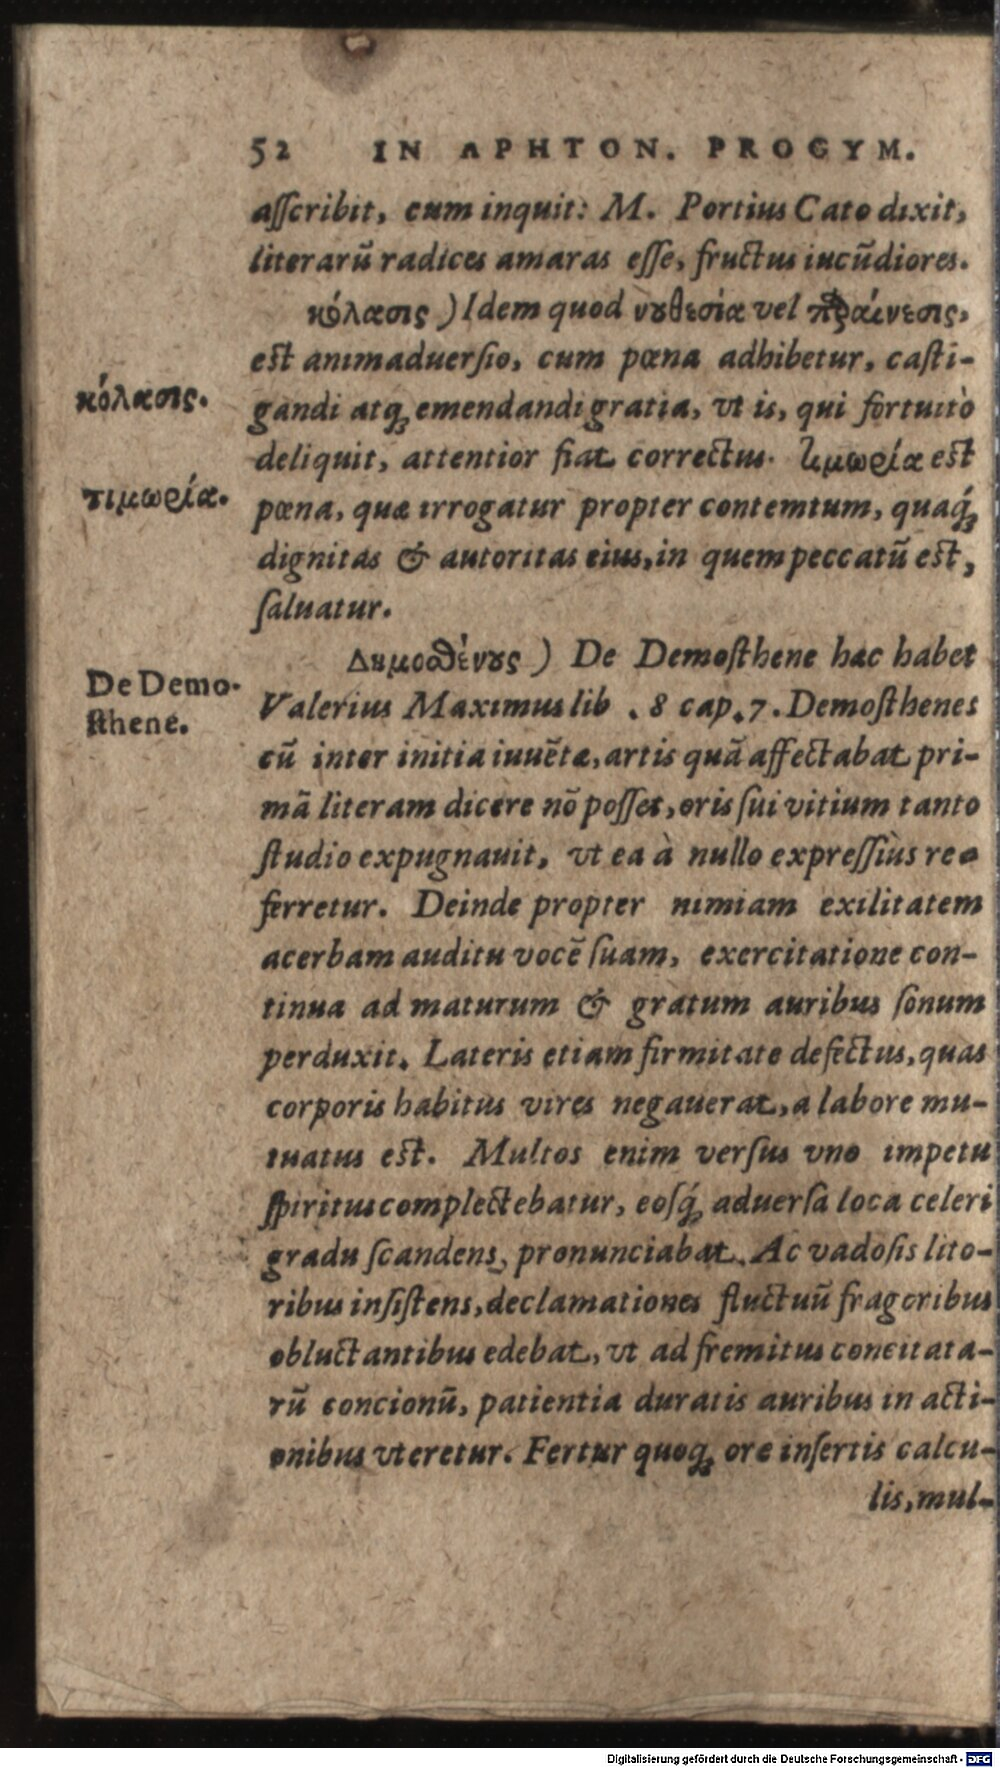 52 IN APHTON. PROGYM.
aſſcribit, cum inquit: M. Portius Cato dixit,
literarũ radices amaras eſſe, fructus iucũdiores.
κόλασις ) Idem quod νουθεσία vel παραίνεσις,
est animaduerſio, cum pœna adhibetur, caſti-
κόλασις.
gandi atq; emendandi gratia, vt is, qui fortuitò
deliquit, attentior fiat correctus. τιμωρία est
τιμωρία.
pœna, quæ irrogatur propter contemtum, quaq́;
dignitas & autoritas eius, in quem peccatũ est,
ſaluatur.
Δημοσθένους ) De Demoſthene hæc habet
De Demo-
ſthene.
Valerius Maximus lib . 8 cap. 7. Demoſthenes
cũ inter initia iuuẽtæ, artis quã affectabat pri-
mã literam dicere nõ poſſet, oris ſui vitium tanto
ſtudio expugnauit, vt ea à nullo expreſſiùs re-
ferretur. Deinde propter nimiam exilitatem
acerbam auditu vocẽ ſuam, exercitatione con-
tinua ad maturum & gratum auribus ſonum
perduxit. Lateris etiam firmitate defectus, quas
corporis habitus vires negauerat, a labore mu-
tuatus est. Multos enim verſus vno impetu
ſpiritus complectebatur, eoſq́; aduerſa loca celeri
gradu ſcandens, pronunciabat. Ac vadoſis lito-
ribus inſiſtens, declamationes fluctuũ fragoribus
obluctantibus edebat, vt ad fremitus concitata-
rũ concionũ, patientia duratis auribus in acti-
onibus vteretur. Fertur quoq; ore inſertis calcu-
lis, mul-
Digitalisierung gefördert durch die Deutsche Forschungsgemeinschaft - DFG